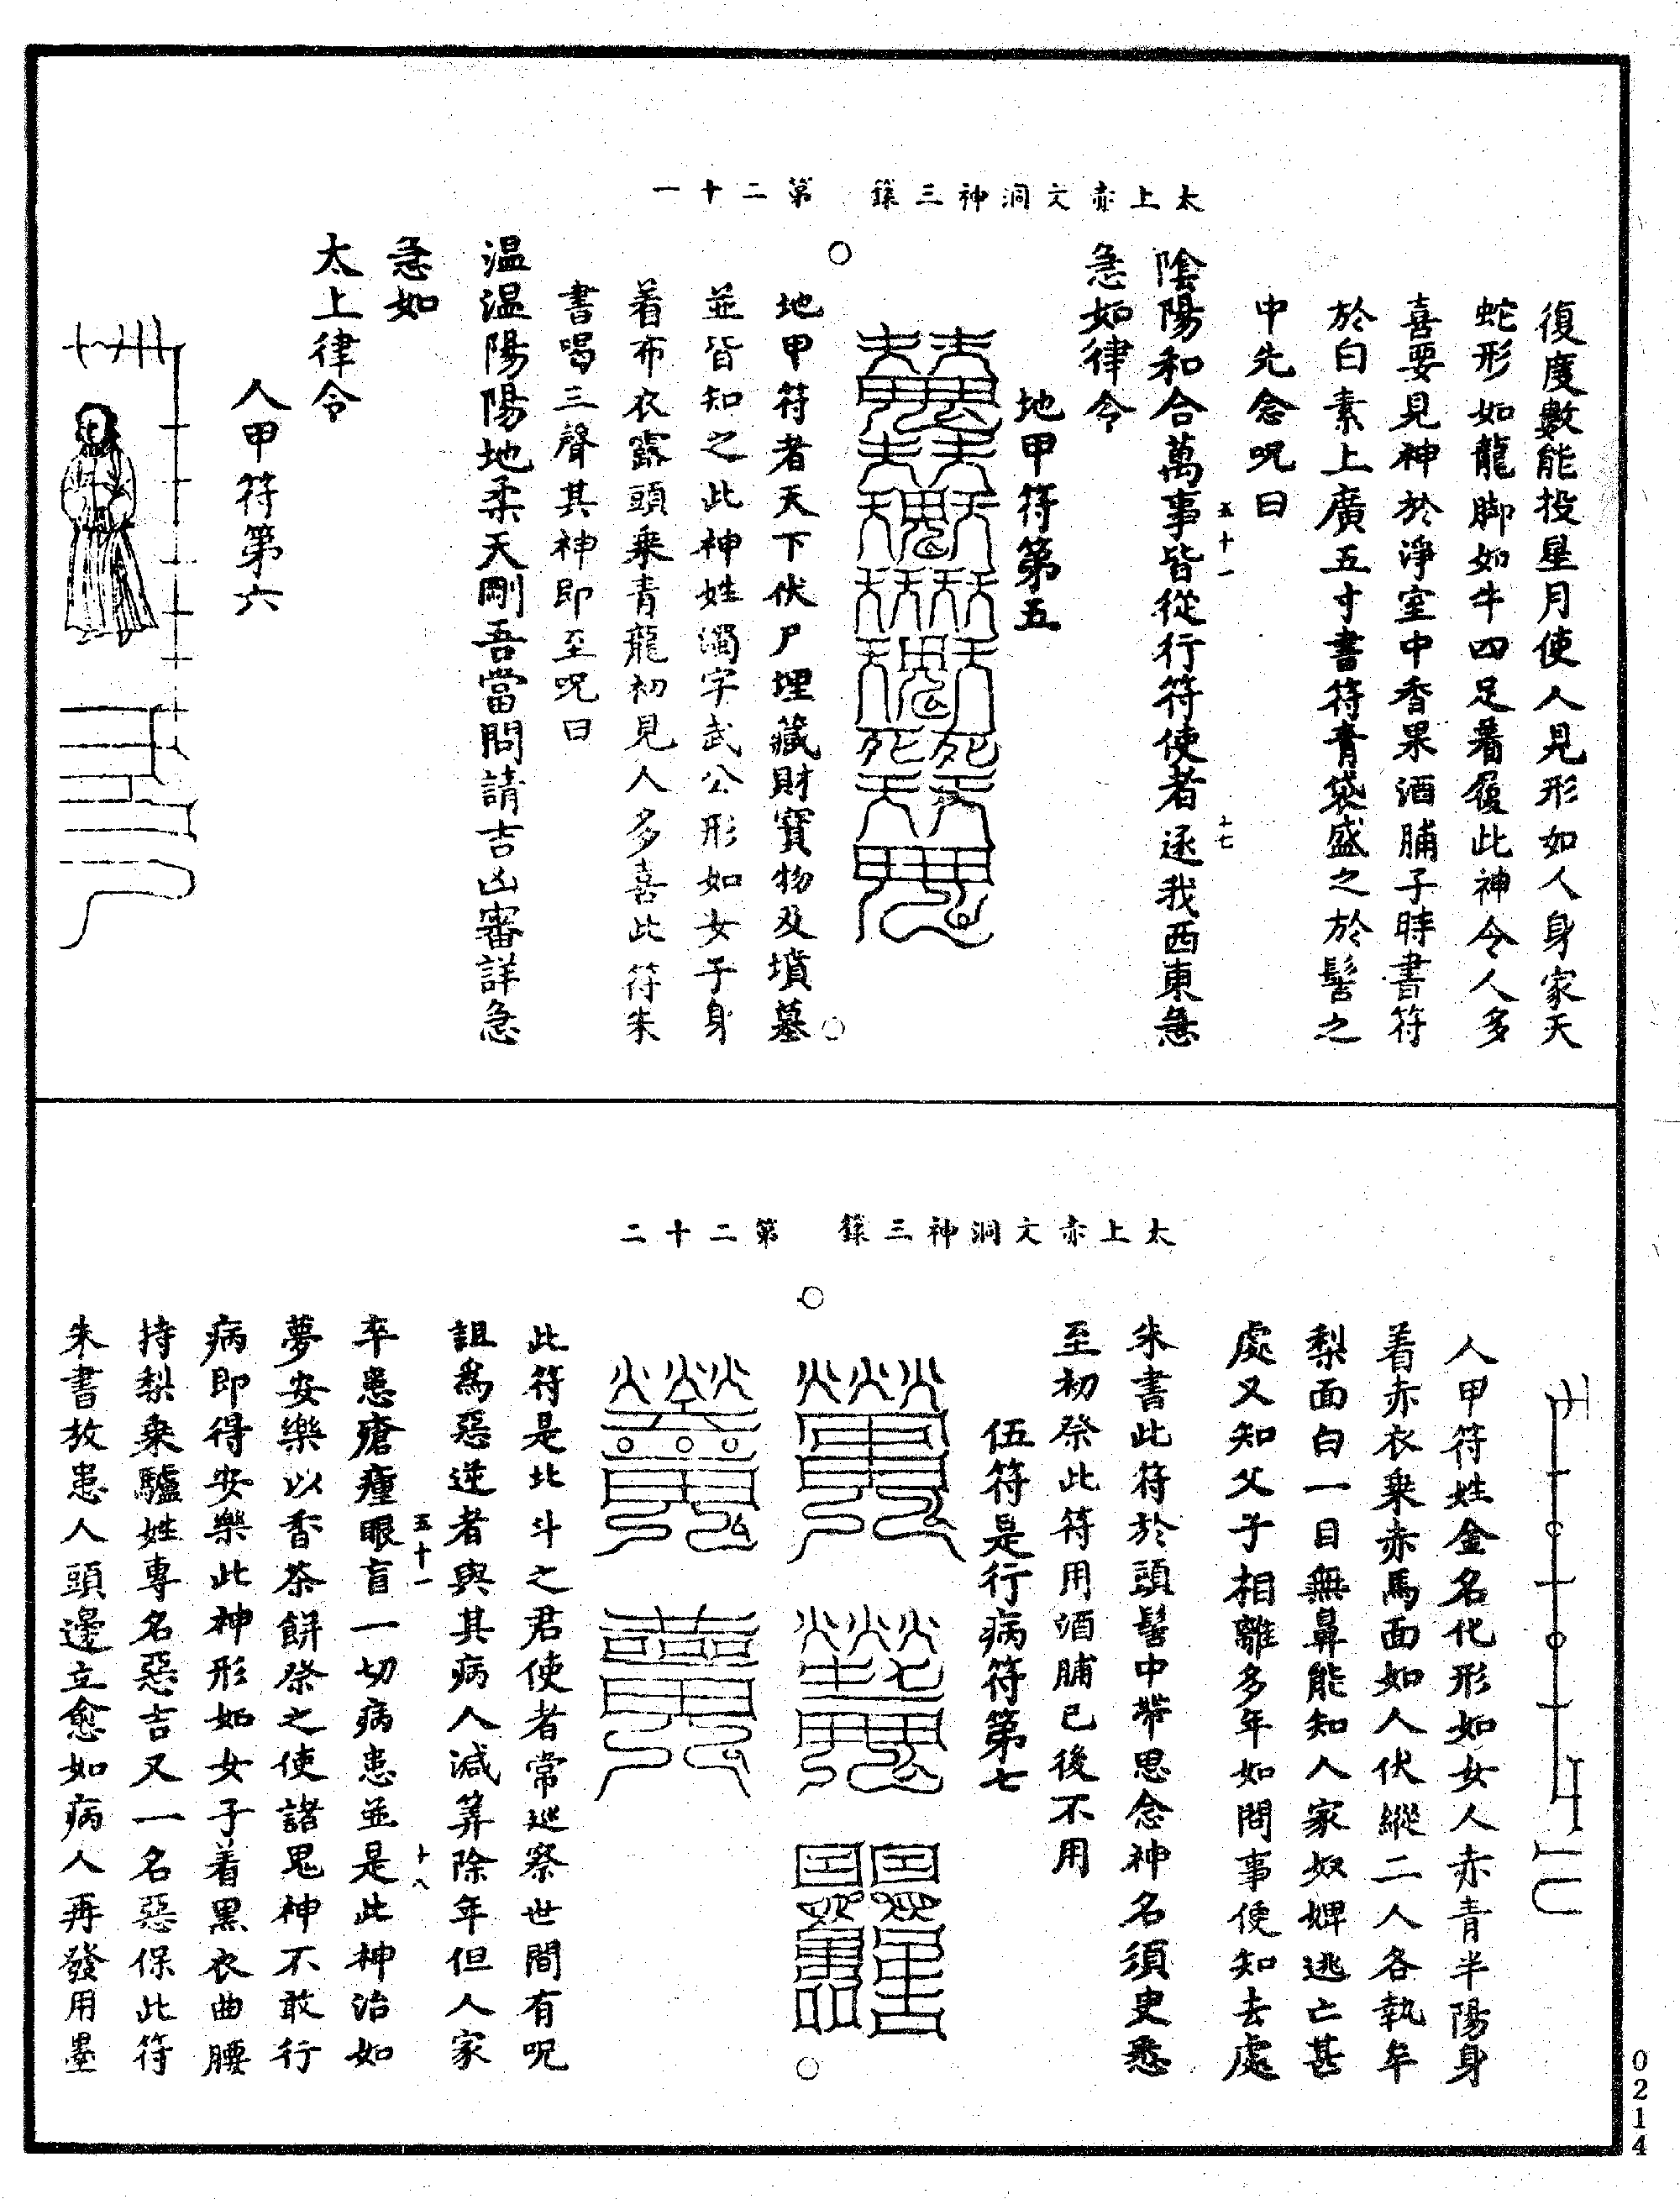 太上赤文洞神三籙 第二十一
復度數能投星月使人見形如人身家天
蛇形如龍脚如牛四足著履此神令人多
喜要見神於淨室中香果酒脯子時書符
於白素上廣五寸書符青袋盛之於髻之
中先念呪曰
五十一 十七
陰陽和合萬事皆從行符使者逐我西東急
急如律令
地甲符第五
地甲符者天下伏尸埋藏財寶物及墳墓
並皆知之此神姓濁字武公形如女子身
着布衣露頭乗青龍初見人多喜此符朱
書喝三聲其神即至呪曰
温温陽陽地柔天剛吾當問請吉凶審詳急
急如
太上律令
人甲符第六
太上赤文洞神三籙 第二十二
人甲符姓金名化形如女人赤青半陽身
着赤衣乗赤馬面如人伏縱二人各執牟
梨面白一目無鼻能知人家奴婢逃亡甚
處又知父子相離多年如問事便知去處
朱書此符於頭髻中帶思念神名須史悉
至初祭此符用酒脯已後不用
伍符是行病符第七
此符是北斗之君使者常巡察世間有呪
詛爲惡逆者與其病人減筭除年但人家
五十一 十八
卒患瘡瘇眼盲一切病患並是此神治如
夢安樂以香茶餅祭之使諸鬼神不敢行
病即得安樂此神形如女子着黑衣曲腰
持梨乗驢姓專名惡吉又一名惡保此符
朱書故患人頭邊立愈如病人再發用墨
0214